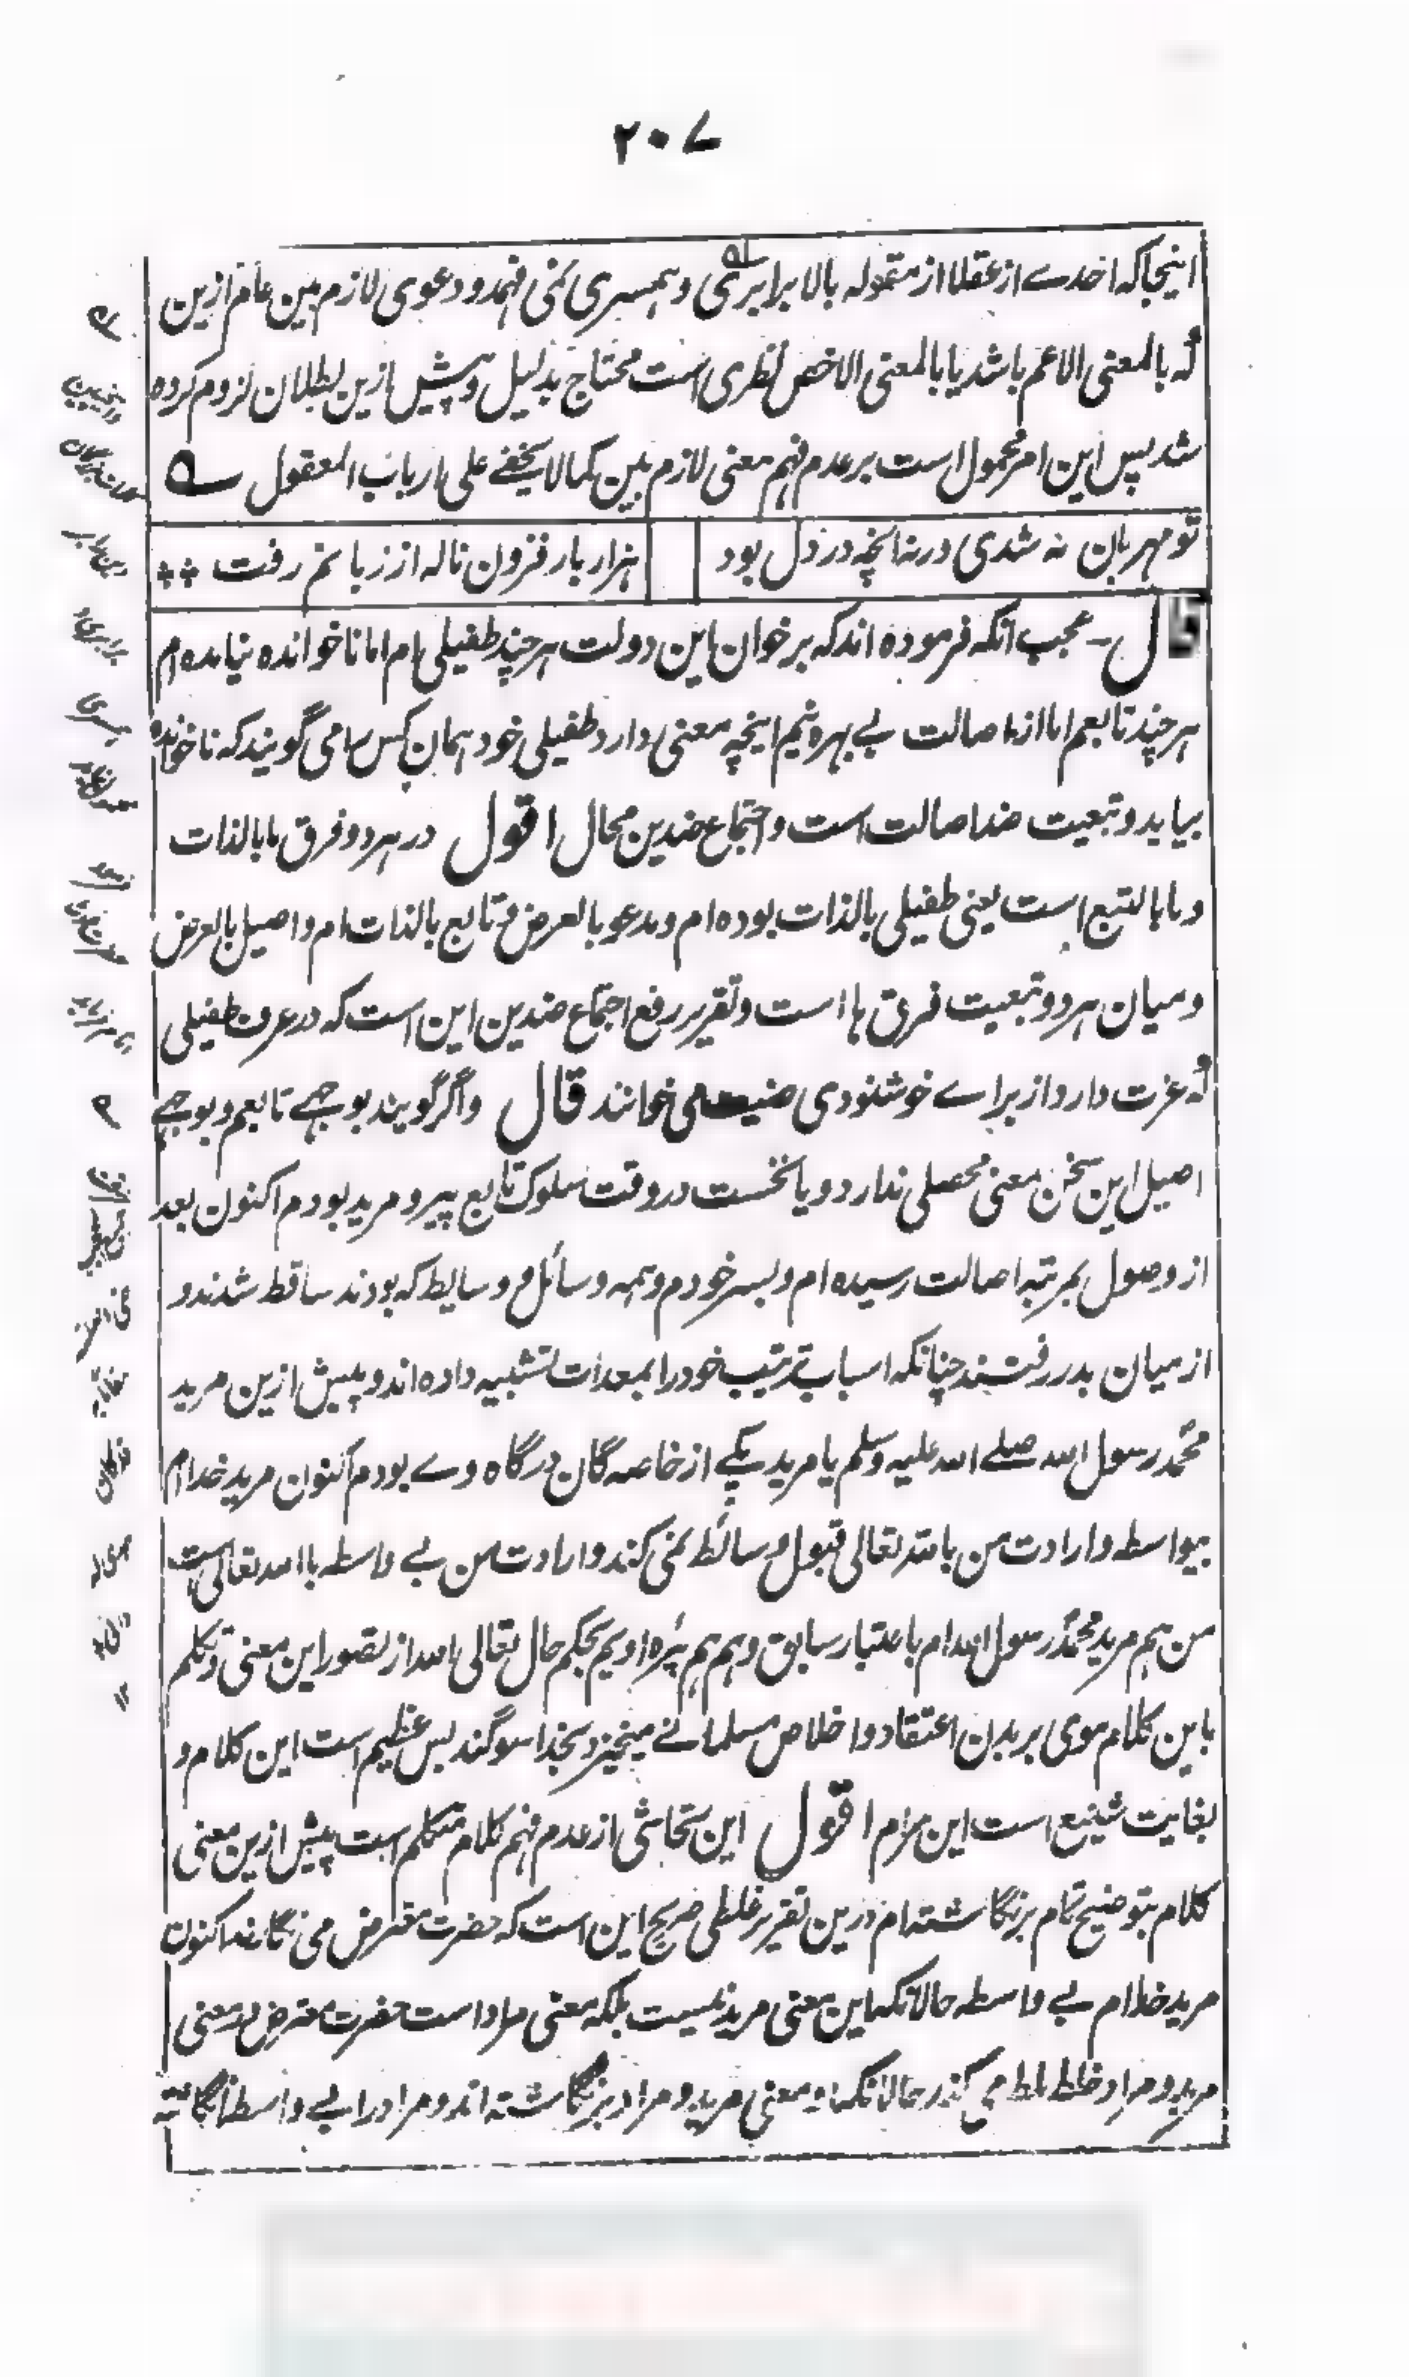 ۲۰۷
اینجاکه احدے از عقلا از مقوله بالا برابری و همسری نمی فهمد و دعوی لازم بین عام ازین
که بالمعنی الاعم باشد یا بالمعنی الاخص نظری است محتاج بدلیل و پیش ازین بطلان لزوم کرده
شد پس این امر محمول است بر عدم فهم معنی لازم بین کمالا یخفے علی ارباب المعقول ؎
تو مهربان نه شدی ورنه انچه در دل بود
هزار بار فزون ناله از زبانم رفت
قال۔ عجب آنکه فرموده اند که بر خوان این دولت هر چند طفیلی ام اما ناخوانده نیامده ام
هر چند تابعم اما از اصالت بے بهره نیم اینچه معنی دارد طفیلی خود همان کس را می گویند که ناخوانده
بیاید و تبعیت ضد اصالت است و اجتماع ضدین محال اقول در هر دو فرق ما بالذات
و ما بالتبع است یعنی طفیلی بالذات بوده ام و مدعو بالعرض و تابع بالذات ام و اصیل بالعرض
و میان هر دو تبعیت فرق ها است و تقریر رفع اجتماع ضدین این است که در عرف طفیلی
که عزت دارد از براے خوشنودی می خوانند قال و اگر گویند بوجهے تابعم و بوجهے
اصیل این سخن معنی محصلی ندارد و یا نخست در وقت سلوک تابع پیر و مرید بودم اکنون بعد
از وصول بمرتبه اصالت رسیده ام و بسر خودم و همه وسائل و وسایط که بودند ساقط شدند و
از میان بدر رفتند چنانکه اسباب ترتیب خود را بمعدات تشبیه داده اند و پیش ازین مرید
محمد رسول الله صلے الله علیه وسلم یا مرید یکے از خاصه گان درگاه وے بودم اکنون مرید خدا ام
بیواسطه و ارادت من بالله تعالی قبول وسائط نمی کند و ارادت من بے واسطه با الله تعالی است
من هم مرید محمد رسول الله ام باعتبار سابق و هم هم پیره اویم بحکم حال تعالی الله از تصور این معنی و تکلم
باین کلام موی بر بدن اعتقاد و اخلاص مسلمانے میخیزد بخدا سوگند بس عظیم است این کلام و
بغایت شنیع است این مرام اقول این تحاشی از عدم فهم کلام متکلم است پیش ازین معنی
کلام بتوضیح تمام برنگاشته ام درین تقریر غلطی صریح این است که حضرت معترض می نگارند اکنون
مرید خدا ام بے واسطه حالانکه این معنی مرید نیست بلکه معنی مراد است حضرت معترض در معنی
مرید و مراد خلط ملط می کند حالانکه معنی مرید و مراد برنگاشته اند و مراد را بے واسطه